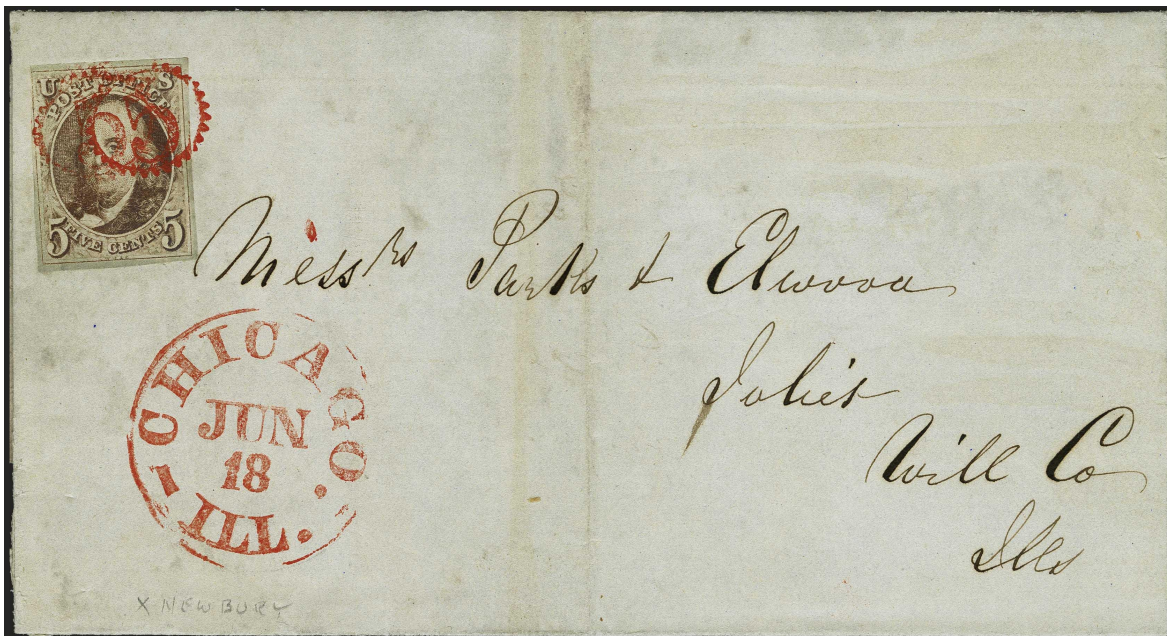 U S
POST OFFICE
5 FIVE CENTS 5
Messrs Parks & Elwood
Joliet
Will Co
Ills
CHICAGO.
JUN
18
ILL.
X NEWBURY